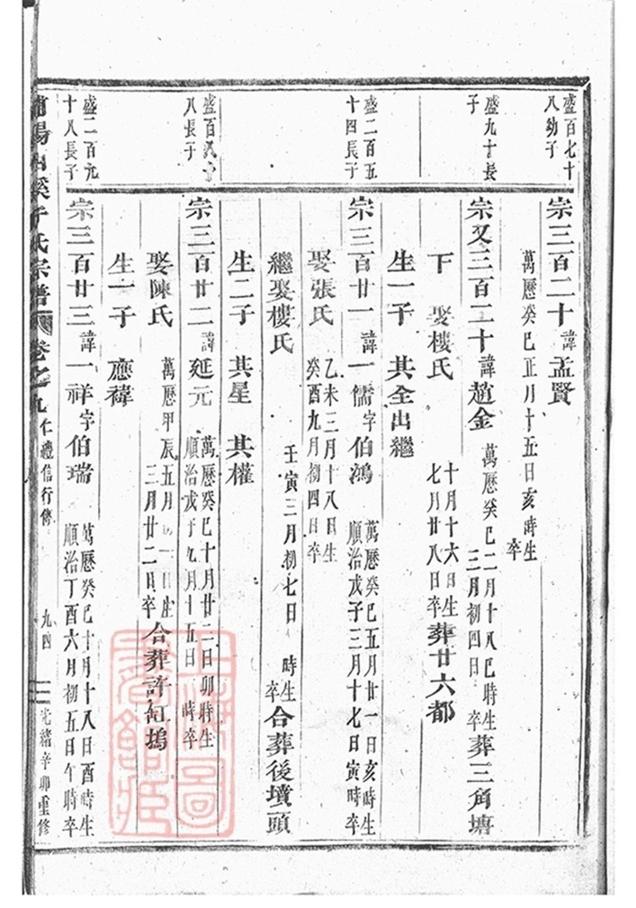 盛百七十
八幼子
宗三百二十 諱 孟賢
萬曆癸巳正月十五日亥時生
卒
盛九十長
子
宗又三百二十 諱 趙金 萬曆癸巳二月十八巳時生
三月初四日 卒 葬三角塘
下 娶樓氏 十月十六日生
七月廿八日卒 葬廿六都
生一子 其全出繼
盛二百五
十四長子
宗三百廿一 諱 一儒 字 伯鴻 萬曆癸巳五月廿一日亥時生
順治戊子三月十七日寅時卒
娶張氏 乙未三月十八日生
癸酉九月初四日卒
繼娶樓氏 壬寅三月初七日 時生
卒 合葬後墳頭
生二子 其星 其權
盛百八十
八長子
宗三百廿二 諱 延元 萬曆癸巳十月廿二日卯時生
順治戊子九月十五日 時卒
娶陳氏 萬曆甲辰五月 一日生
三月廿二日卒 合葬許缸塢
生一子 應禕
盛二百九
十八長子
宗三百廿三 諱 一祥 字 伯瑞 萬曆癸巳十月十八日酉時生
順治丁酉六月初五日午時卒
陽 溪于氏宗譜 卷之九 仁禮信行傳 九四 光緒辛卯重修